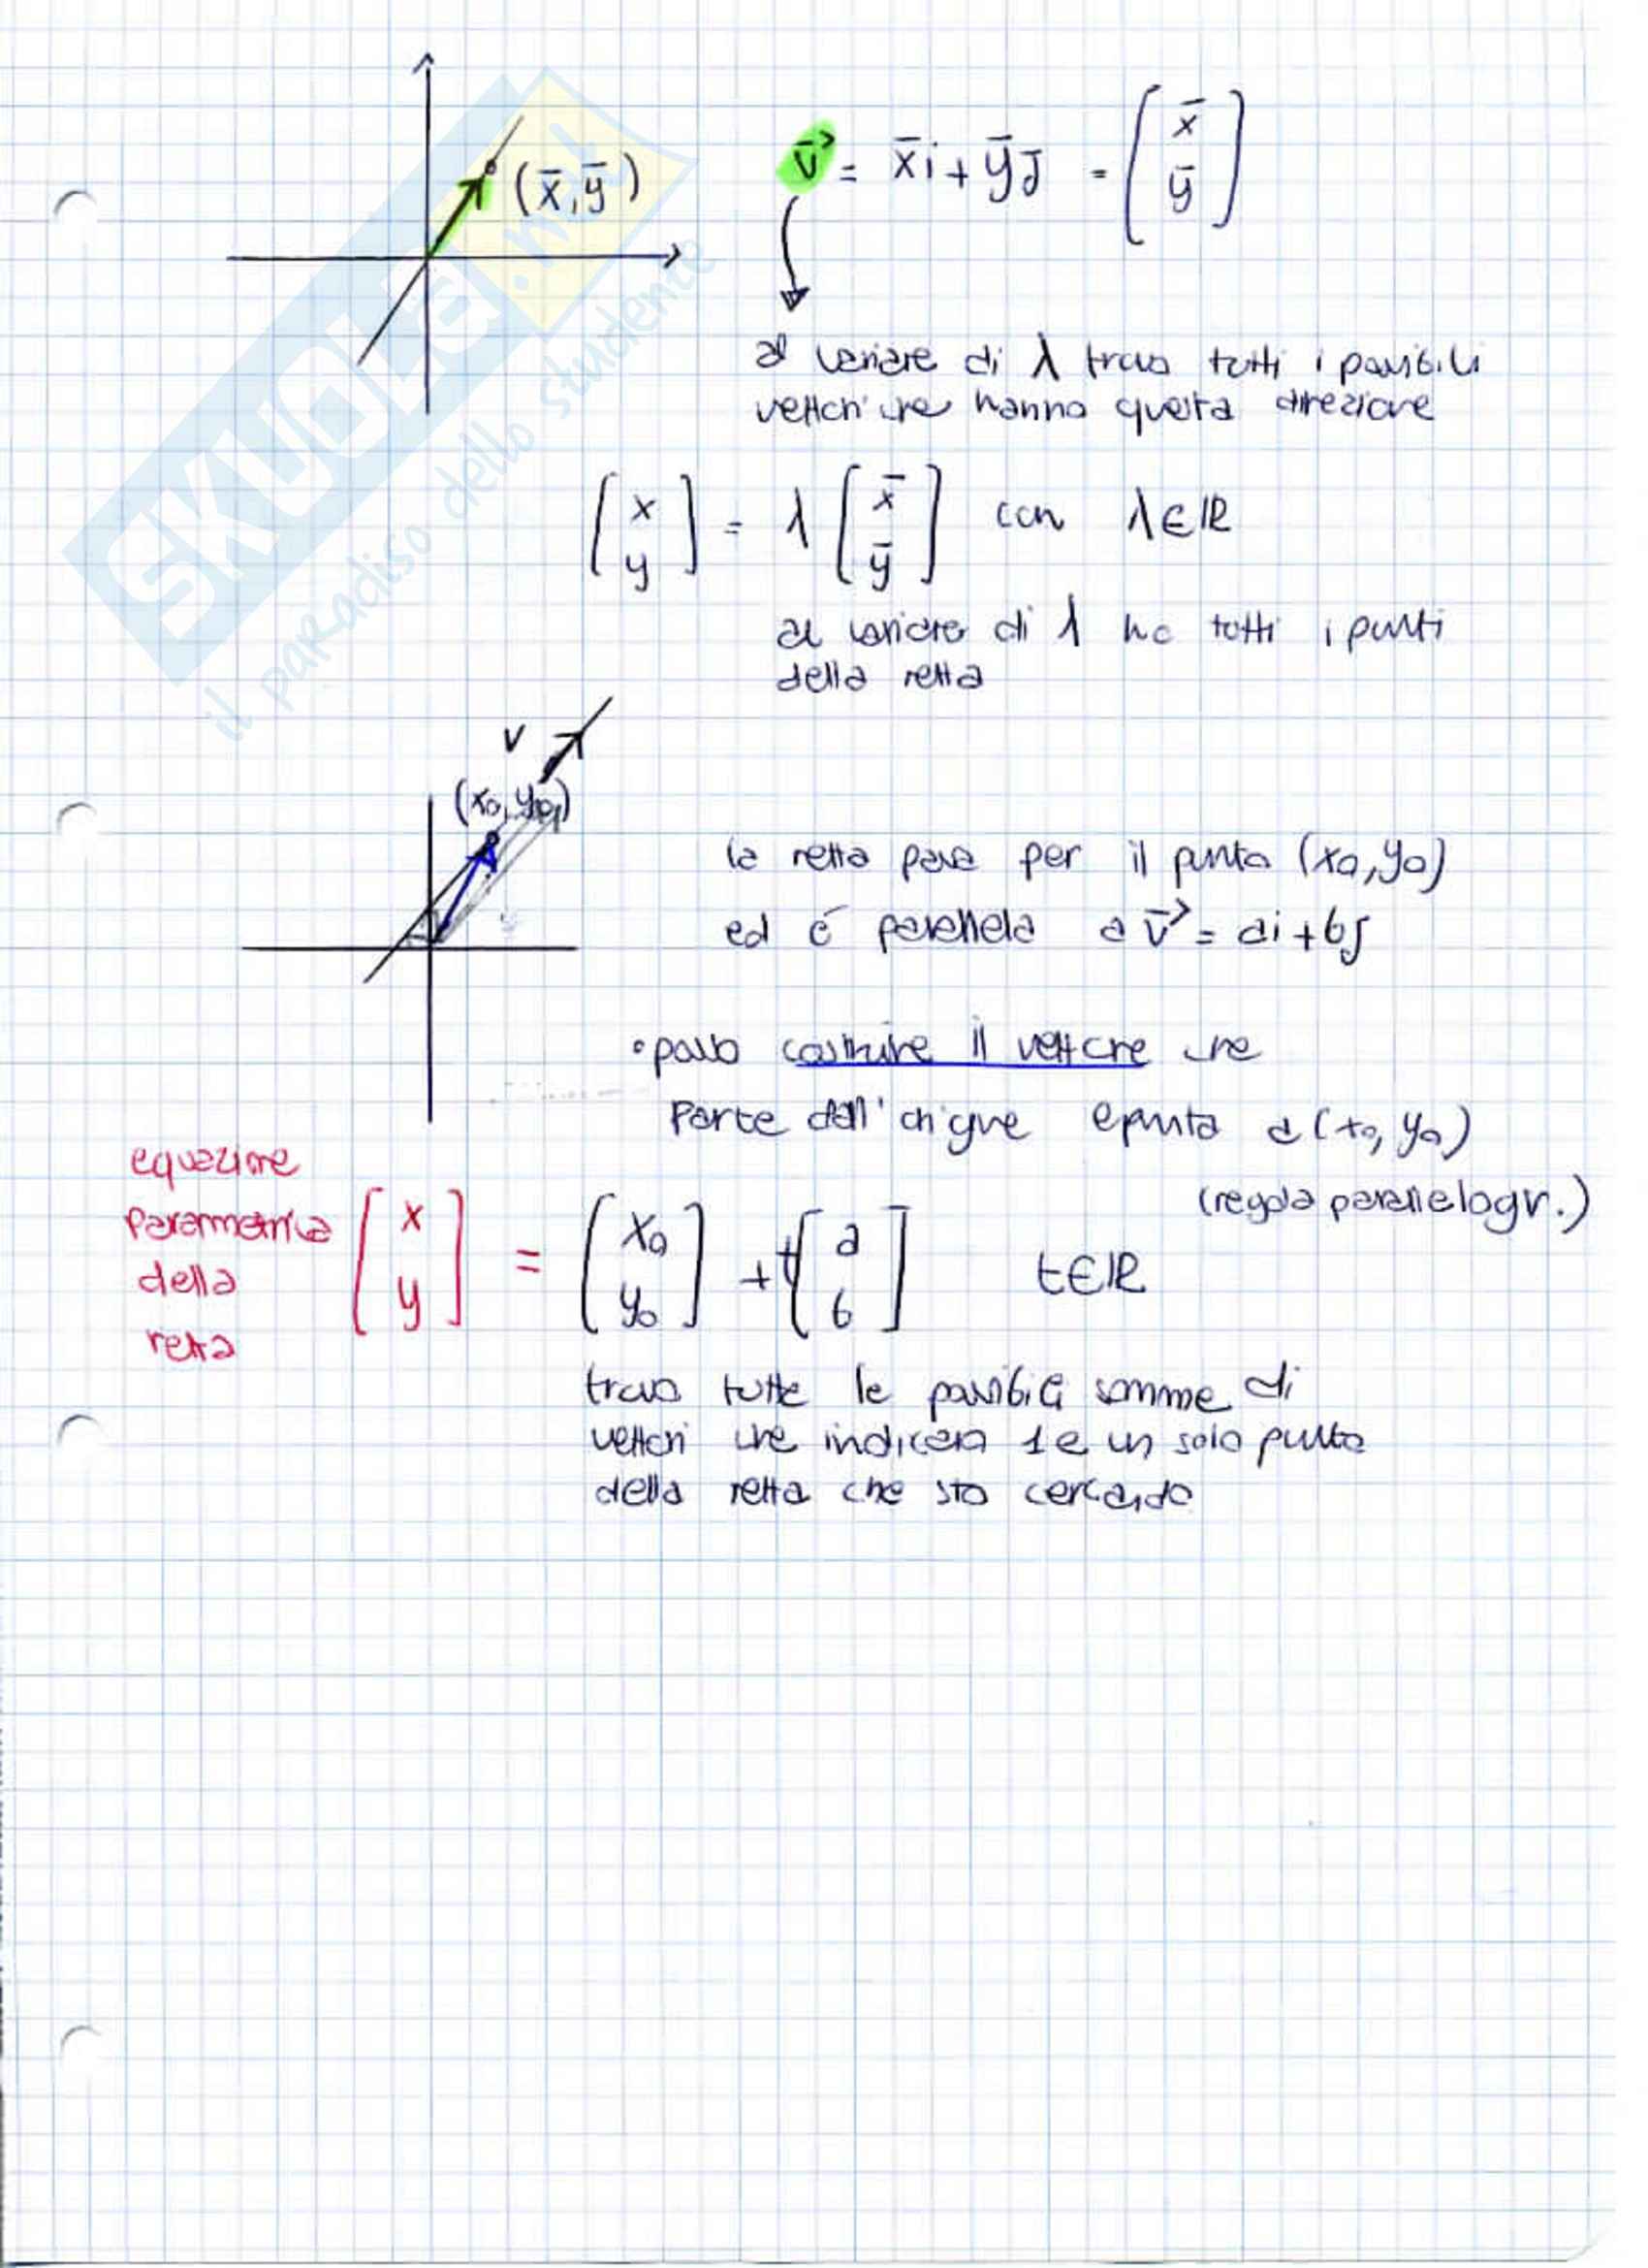 (x̄,ȳ)
v⃗ = x̄i + ȳj = [x̄ ȳ]
al variare di λ trovo tutti i possibili
vettori che hanno questa direzione
[x y] = λ [x̄ ȳ] con λ∈ℝ
al variare di λ ho tutti i punti
della retta
v
(x₀, y₀)
la retta passa per il punto (x₀, y₀)
ed é parallela a v⃗ = ai + bj
• posso costruire il vettore che
parte dall'origine e punta a (x₀, y₀)
(regola parallelogr.)
equazione
parametrica
della
retta
[x y] = [x₀ y₀] + t[a b] t∈ℝ
trovo tutte le possibili somme di
vettori che indicano 1 e un solo punto
della retta che sto cercando
SKUOLA.net
il paradiso dello studente